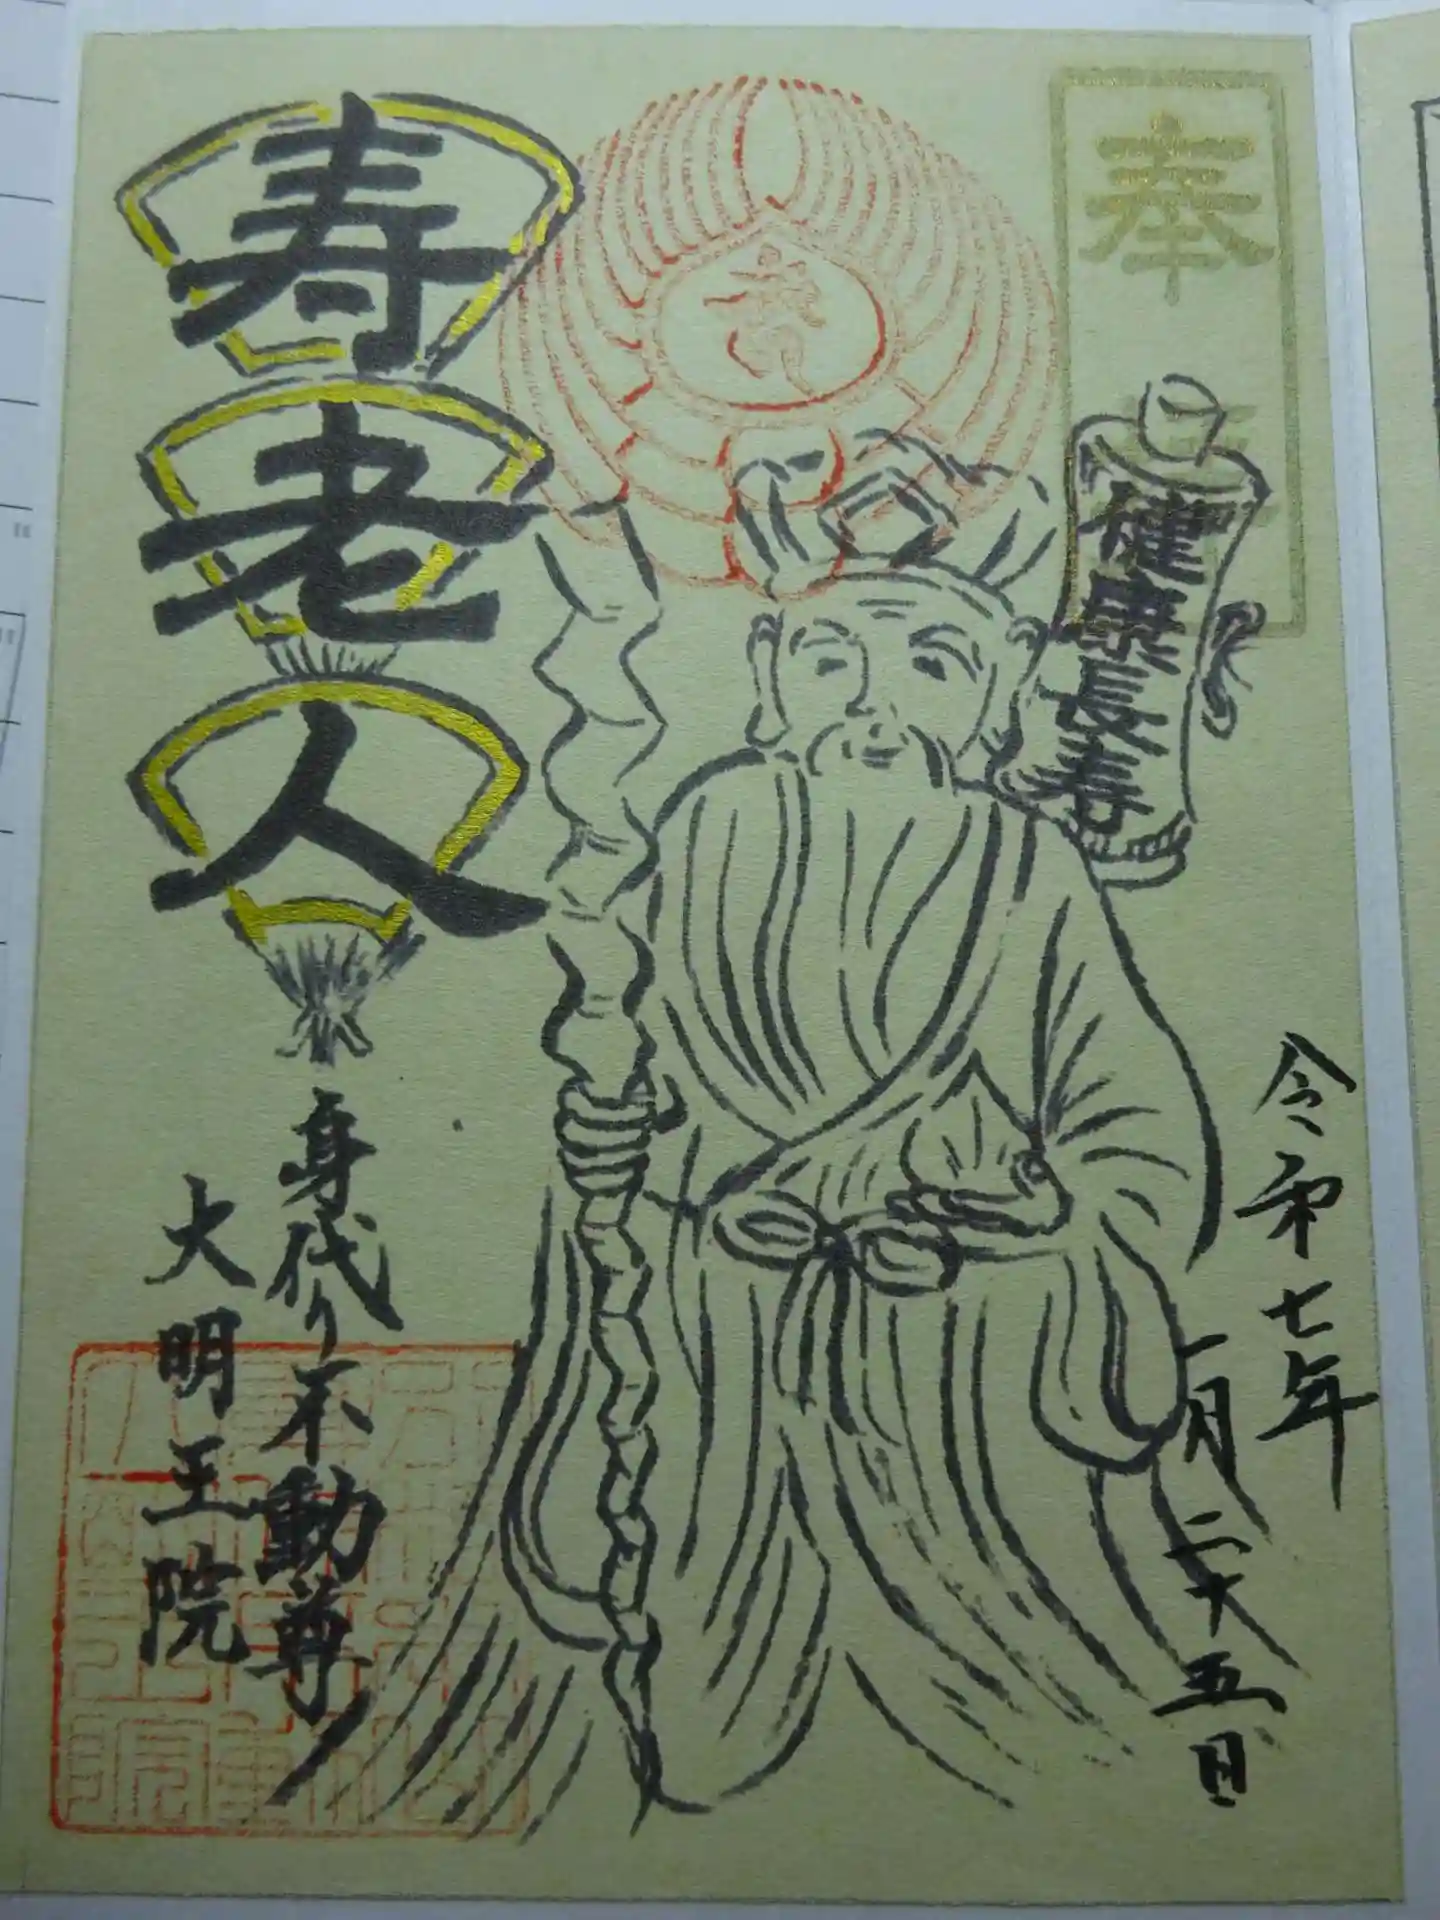 奉拝
健康長寿
令和七年
一月二十五日
寿老人
身代り不動尊
大明王院